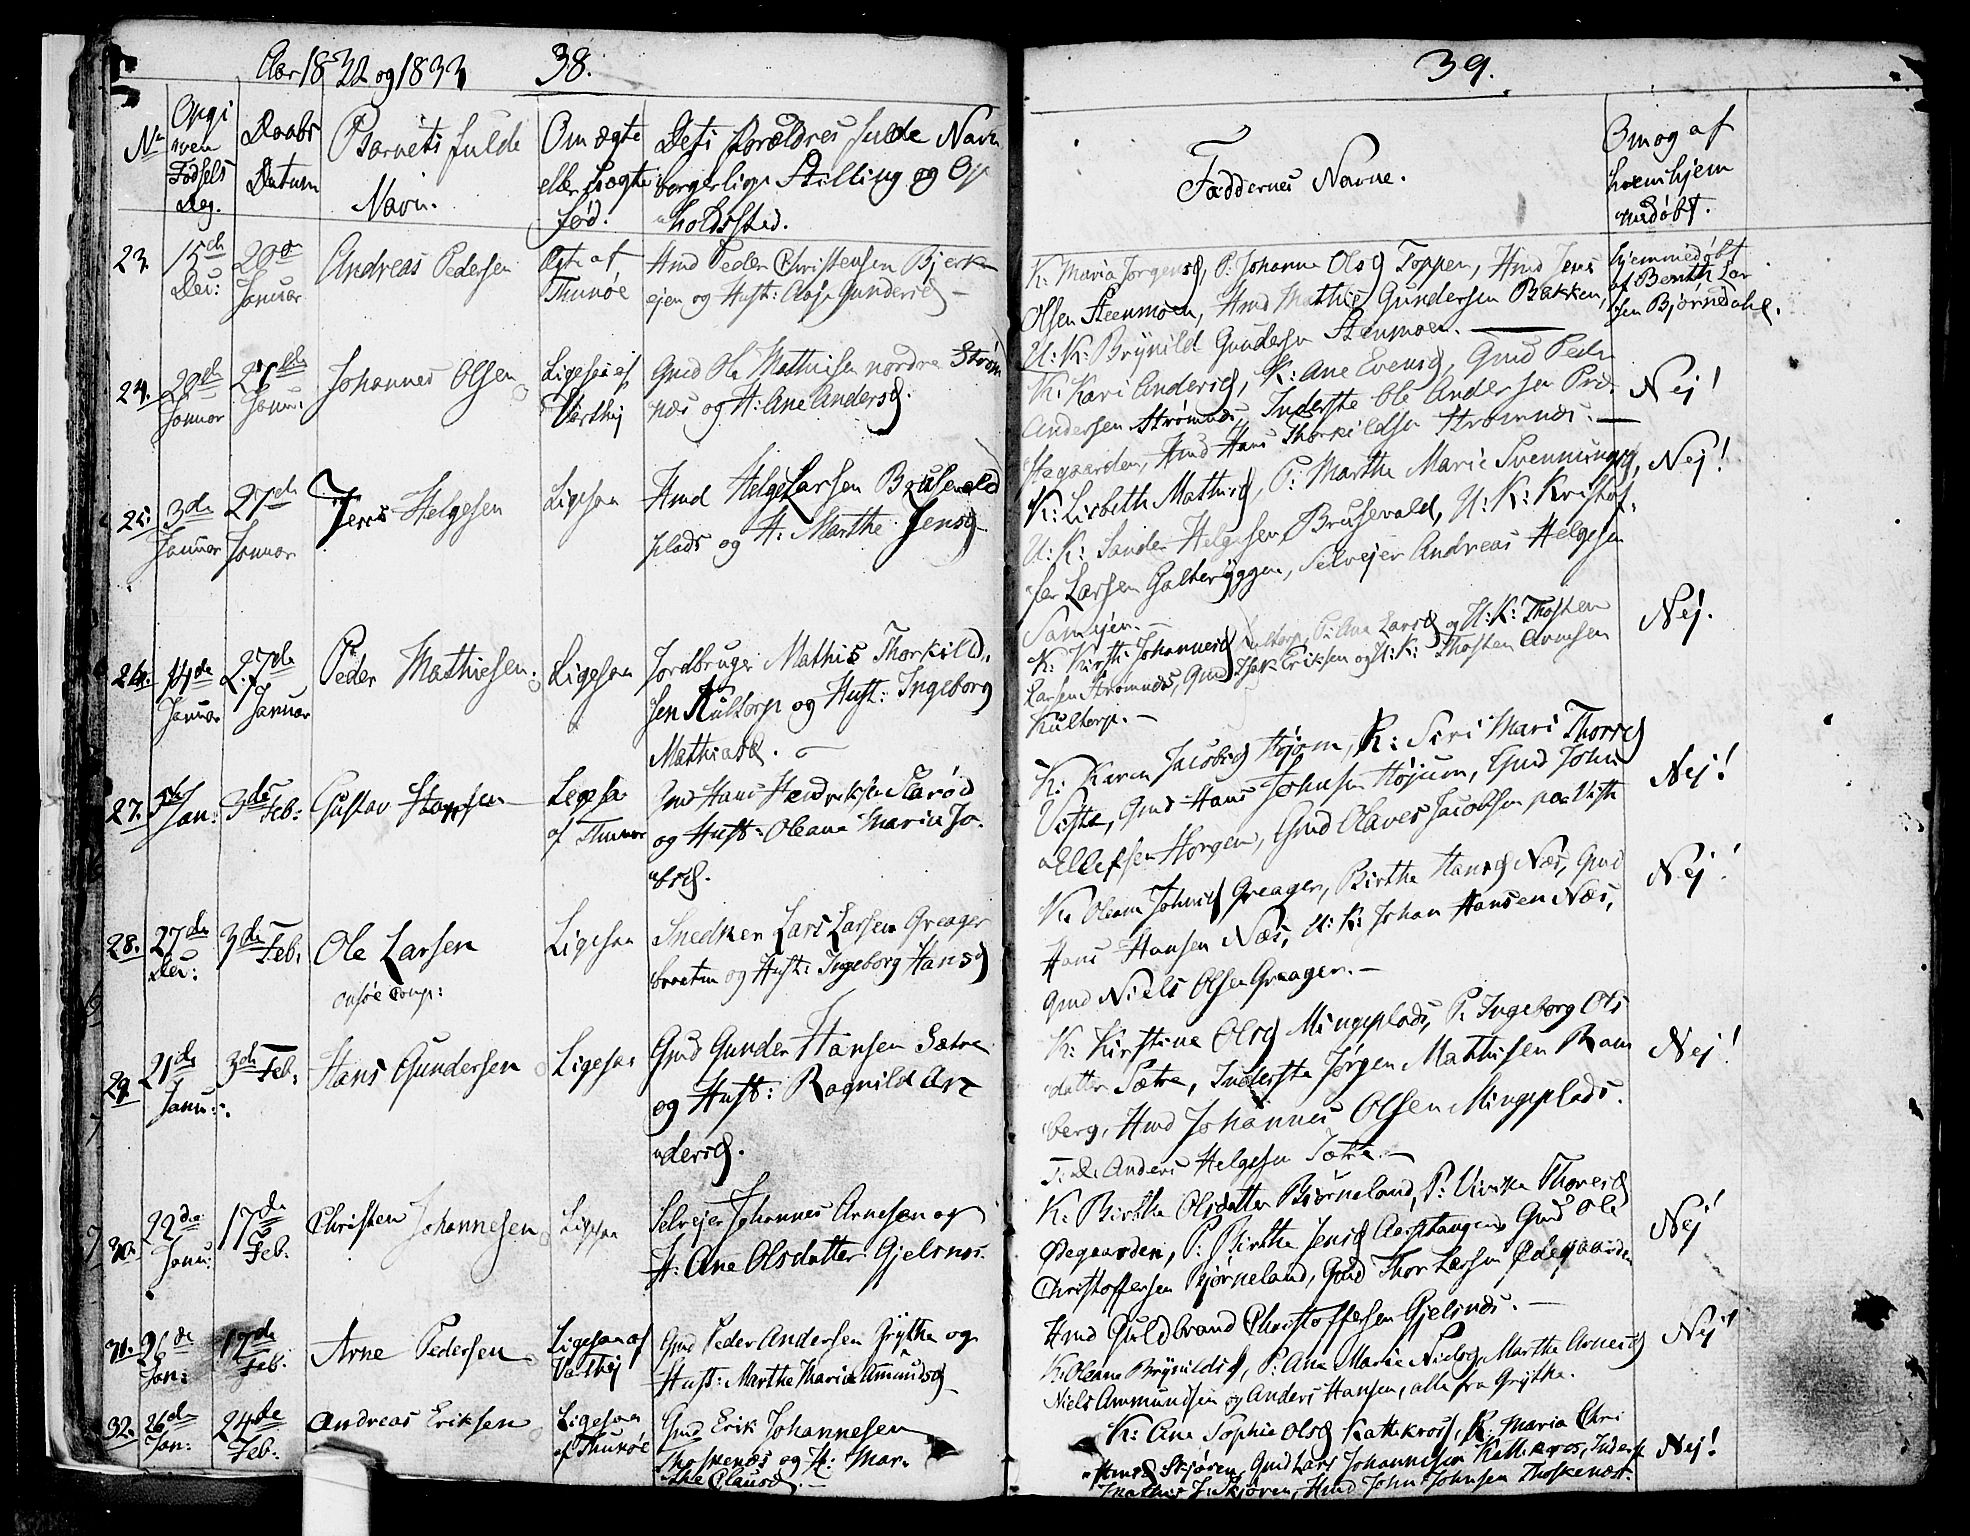 Aar 1832 og 1833
38.
No
Opgi
ven
Fødsels
Dag.
Daabs
Datum
Barnets fulde
Navn.
Om ægte
eller uægte
fød:
Dets Forældres fulde Navn
borgerlige Stilling og Op
holdssted.
23.
15de
Dec:
20de
Januar
Andreas Pedersen
Ægte af
Thunøe
Hmd Peder Christensen Bjerke
ejen og Hust: Gundersd
24.
20de
Januar
27de
Janu:
Johannes Olsen
Ligesaa af
Varthej
Gmd Ole Mathisen nordre Strøm
næs og H: Ane Andersd.
25.
3de
Januar
27de
Januar
Jens Helgesen
Ligesaa
Hmd Helge Larsen Brusevald
plads og H: Marthe Jensd
26.
14de
Januar
27de
Januar
Peder Mathiesen.
Ligesaa
Jordbruger Mathis Thorkild
sen Kultorp og Hust: Ingeborg
Mathiasd.
27.
Jan:
3de Feb:
Gustav
Ligesaa
af Thunøe
Gmd Hans Hendriksen
og Hust: Oleane Maria Ja
28.
27de
Dec:
3de Feb:
Ole Larsen
Onsøe Comp:
Ligesaa
Snedker Lars Larsen Greager
braaten og Hust: Ingeborg Hansd
29.
21de
Janu:
3de Feb:
Hans Gundersen
Ligesaa
Gmd Gunder Hansen Sætre
og Hust: Ragnild An
dersd.
30.
22de
Janu:
17de
Feb.
Christen Johannesen
Ligesaa
Selvejer Johannes Arnesen og
H: Ane Olsdatter Gjelsnæs.
31.
26de
Jan:
17de
Feb.
Arne Pedersen
Ligesaa af
Varthej
Gmd Peder Andersen Grythe og
Hust: Marthe Maria Amundsd
32.
26de
Jan:
24de
Feb:
Andreas Eriksen
Ligesaa
af Thunøe
Gmd Erik Johannesen
Thoskenæs og H: Mar
the Clausd.
39.
Faddernes Navne.
Om og af
hvem hjem
medøbt.
K: Maria Jørgensd, P: Johanne Olsd Toppen, Hmd Jens
Olsen Steenmoen, Hmd Mathis Gundersen Bakken,
U: K: Brynild Gundersen Steenmoen.
hjemmedøbt
af Benth Lar
sen Bjørnedahl.
K: Kari Andersd, K: Ane Evensd, Gmd Peder
Andersen Strømnæs, Inderste Ole Andersen Præ
stegaarden, Hmd Hans Thorkildsen Strømnæs.
Nej!
K: Lisbeth Mathisd, P: Marthe Marie Svenningsd,
U: K: Sander Helgesen Brusevald, U: K: Kristof
fer Larsen Galteryggen, Selvejer Andreas Helgesen
Nej!
K: Kirsti Johannesd Kultorp, P: Ane Larsd og U: K: Thosten
Larsen Strømnæs, Gmd Isak Eriksen og U: K: Thosten Arnesen
Kultorp.
Nej.
K: Karen Jacobsd Højum, K: Siri Mari Thorsd
Viste, Gmd Hans Johnsen Højum, Gmd John
Ellefsen Horgen, Gmd Olaves Jacobsen paa Viste
Nej!
K: Oleane Johnsd Greager, Birthe Hansd Næs, Gmd
Hans Hansen Næs, U: K: Johan Hansen Næs,
Gmd Niels Olsen Greager.
Nej!
K: Kirstine Olsd Mingeplads, P: Ingeborg Ols
datter Sætre, Inderste Jørgen Mathisen Ram
berg, Hmd Johannes Olsen Mingeplads.
Anders Helgesen Sætre
Nej!
K: Birthe Olsdatter Bjørneland, P: Thoresd
Ødegaarden, P: Birthe Jensd Gmd Ole
Christoffersen Bjørneland, Gmd Thor Larsen Ødegaarden
Hmd Guldbrand Christoffersen Gjelsnæs.
Nej!
K: Oleane Brynildsd, P: Ane Marie Nielsd Marthe Arnesd
Niels Ammundsen og Anders Hansen, alle fra Grythe.
Nej!
K: Ane Sophie Olsd Kattekross, K: Maria Chri
Skjøren, Gmd Lars Johannesen Kattekros, Inderst
Mathis Skjøren, Hmd John Johnsen Thoskenæs.
Nej!